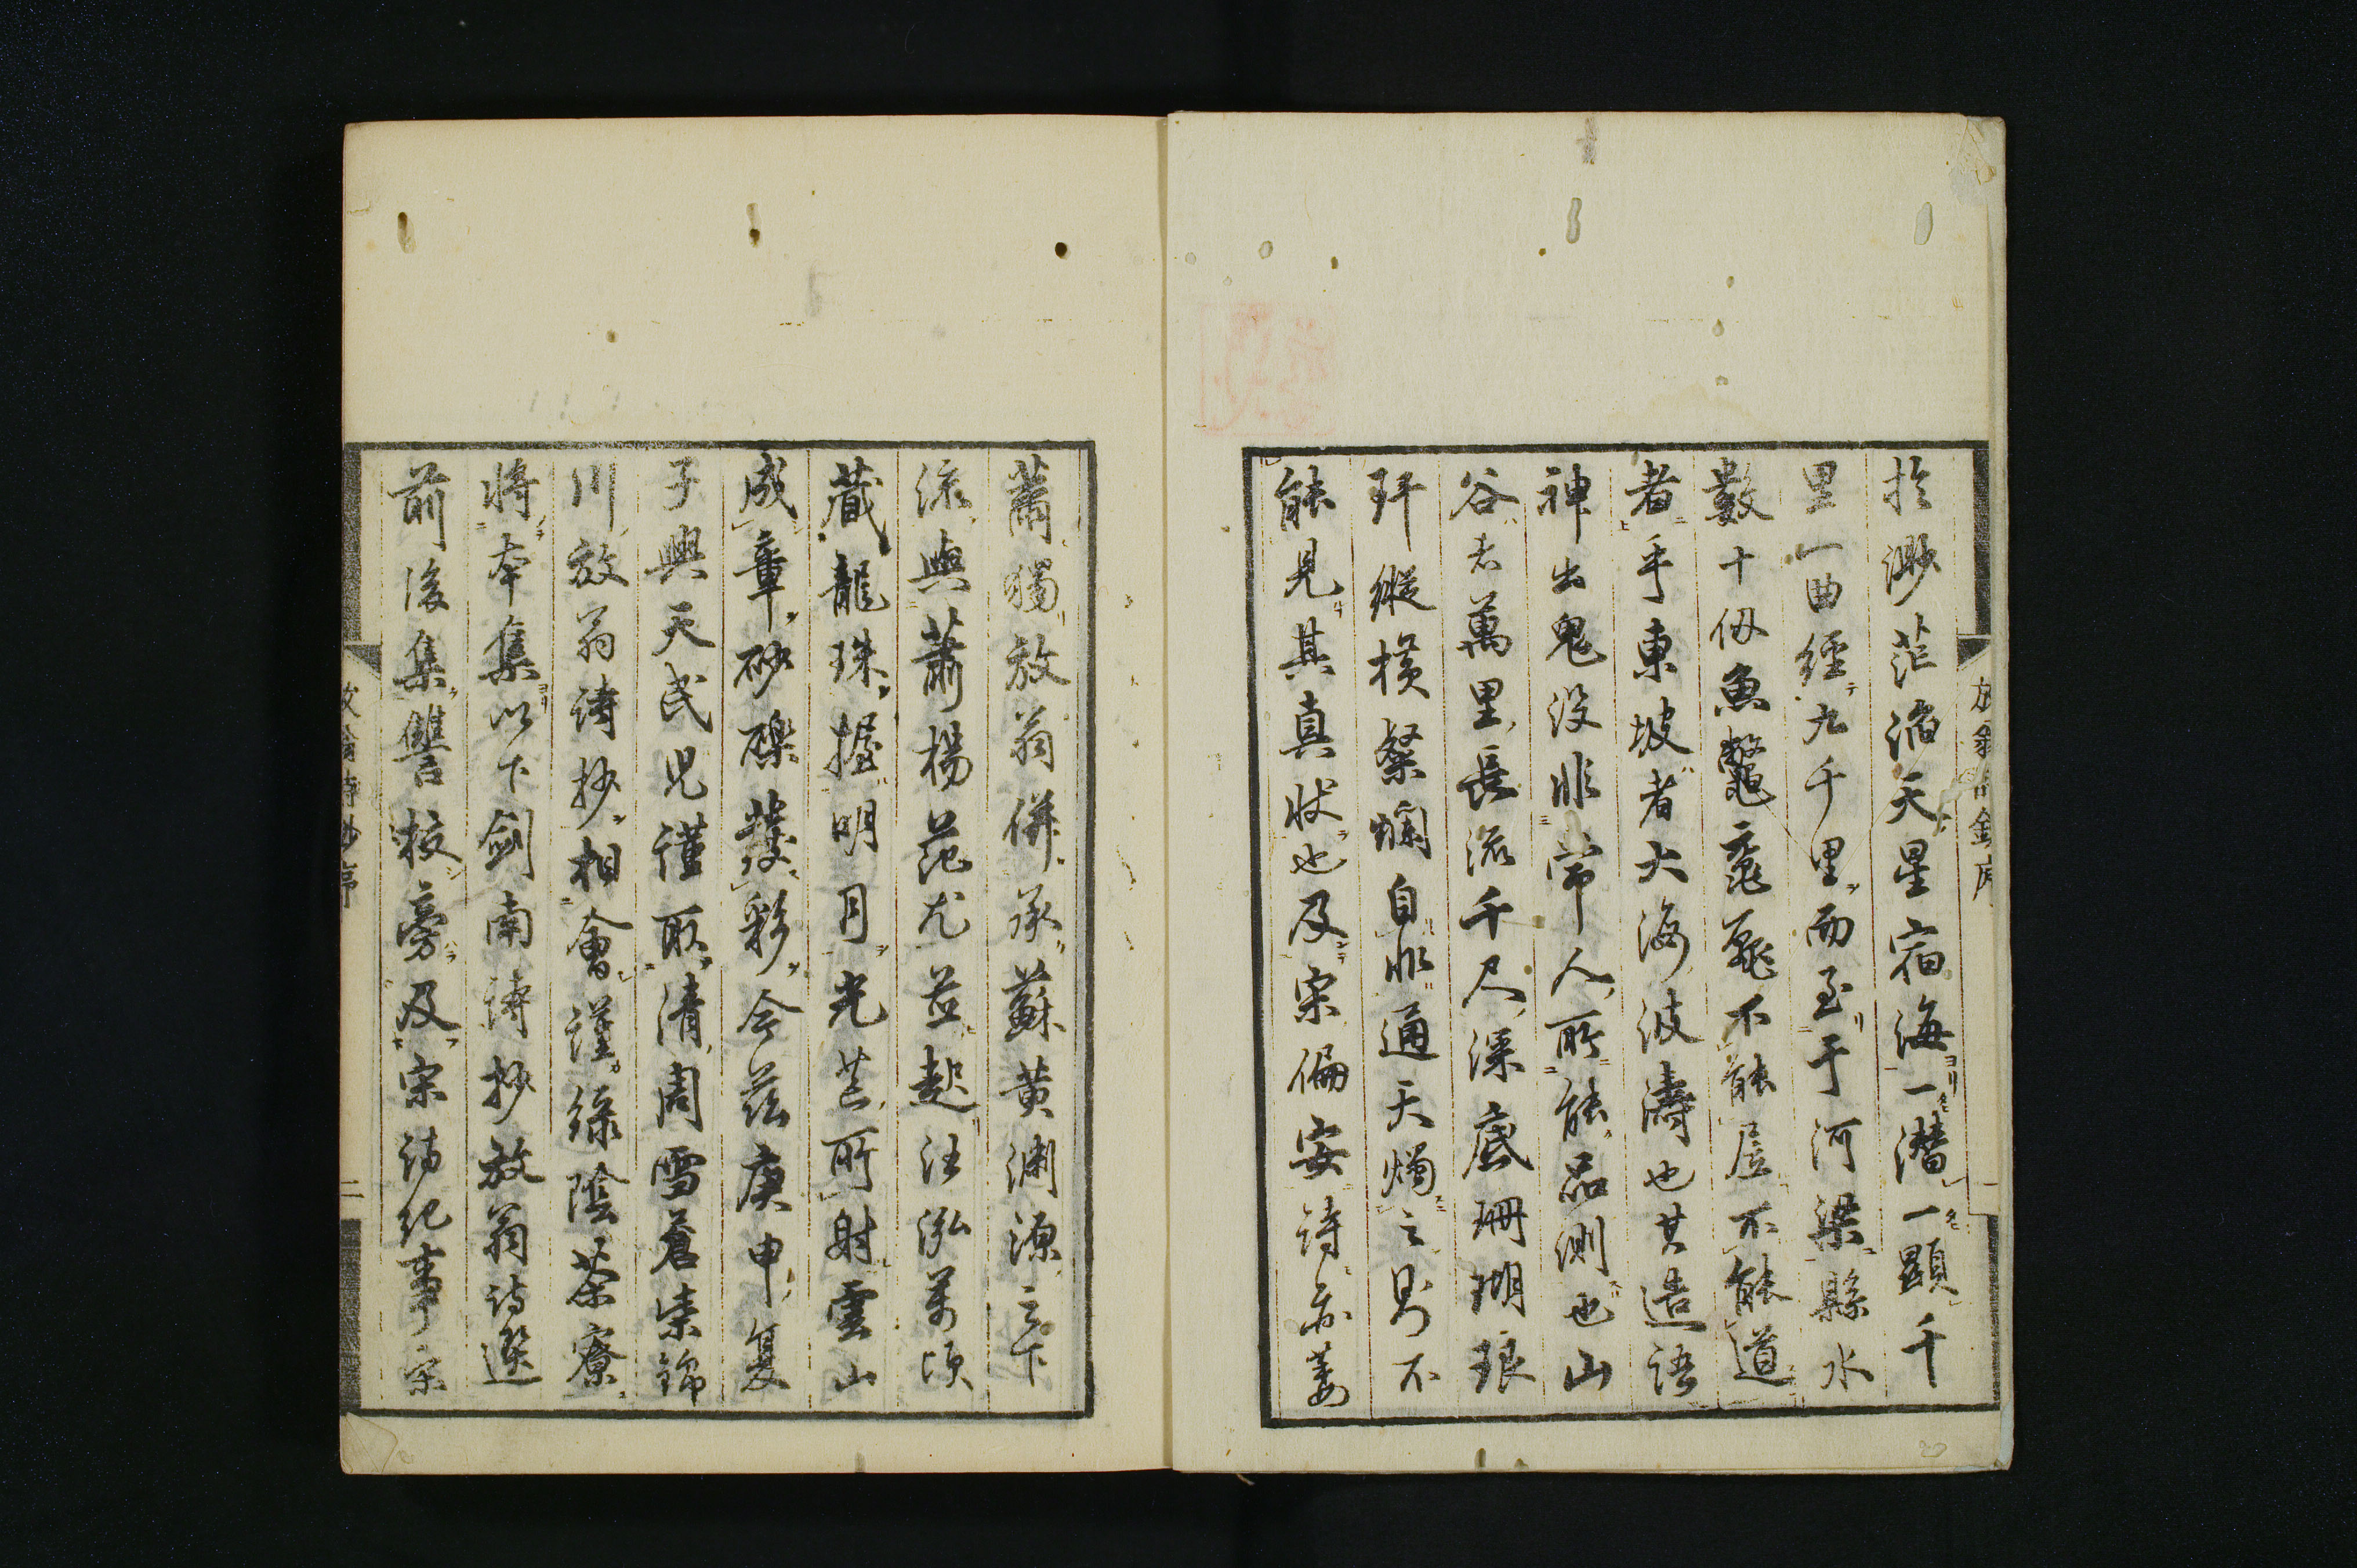 於渺茫滔天星宿海一潛一顯千
里一曲經九千里而至于河梁縣水
數十仭魚鼈黿鼉不能居不能道
者乎東坡者大海波濤也其造語
神出鬼没非常人所能品測也山
谷者萬里長流千尺深底珊瑚琅
玕縱横粲爛自非通天燭之則不
能見其真狀也及宋偏安詩亦萎
薾獨放翁併承蘇黄渊源之下
流與蕭楊范尤並起汪泓万頃
藏龍珠握明月光芒所射雲山
成章砂礫發彩今茲庚申夏
子興天民児謹取清周雪蒼柒錦
川放翁詩抄相會謹緑陰茶寮
將本集以下劍南詩抄放翁詩選
前後集讐校旁及宋詩紀事宋
放翁詩抄序
二